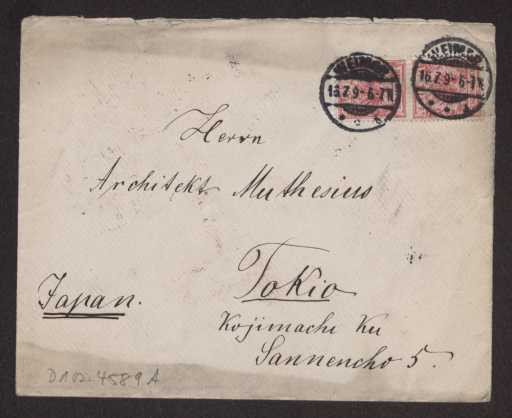 WEIMAR WEIMAR
16.7.9-6-7N 16.7.9-6-7N
Herrn
Architekt Muthesius
Tokio
Japan.
Kojimachi Ku
Sannencho 5.
D102-4589 A